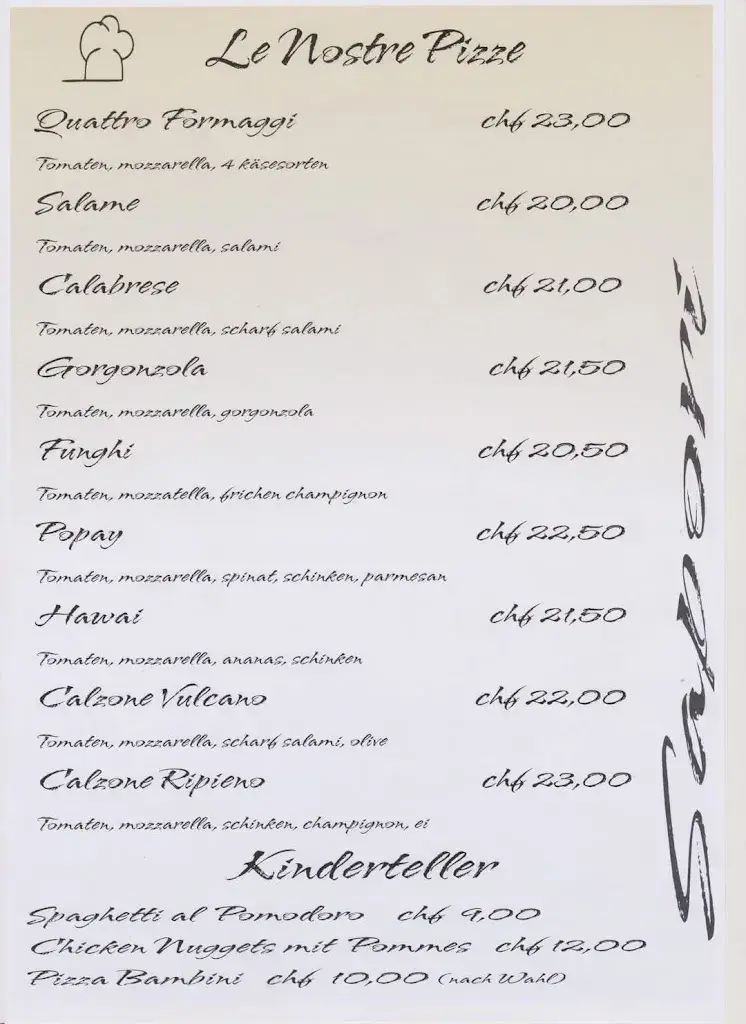 Le Nostre Pizze
Quattro Formaggi chf 23,00
Tomaten, mozzarella, 4 käsesorten
Salame chf 20,00
Tomaten, mozzarella, salami
Calabrese chf 21,00
Tomaten, mozzarella, scharf salami
Gorgonzola chf 21,50
Tomaten, mozzarella, gorgonzola
Funghi chf 20,50
Tomaten, mozzatella, frichen champignon
Popay chf 22,50
Tomaten, mozzarella, spinat, schinken, parmesan
Hawai chf 21,50
Tomaten, mozzarella, ananas, schinken
Calzone Vulcano chf 22,00
Tomaten, mozzarella, scharf salami, olive
Calzone Ripieno chf 23,00
Tomaten, mozzarella, schinken, champignon, ei
Kinderteller
Spaghetti al Pomodoro chf 9,00
Chicken Nuggets mit Pommes chf 12,00
Pizza Bambini chf 10,00 (nach Wahl)
Sapori